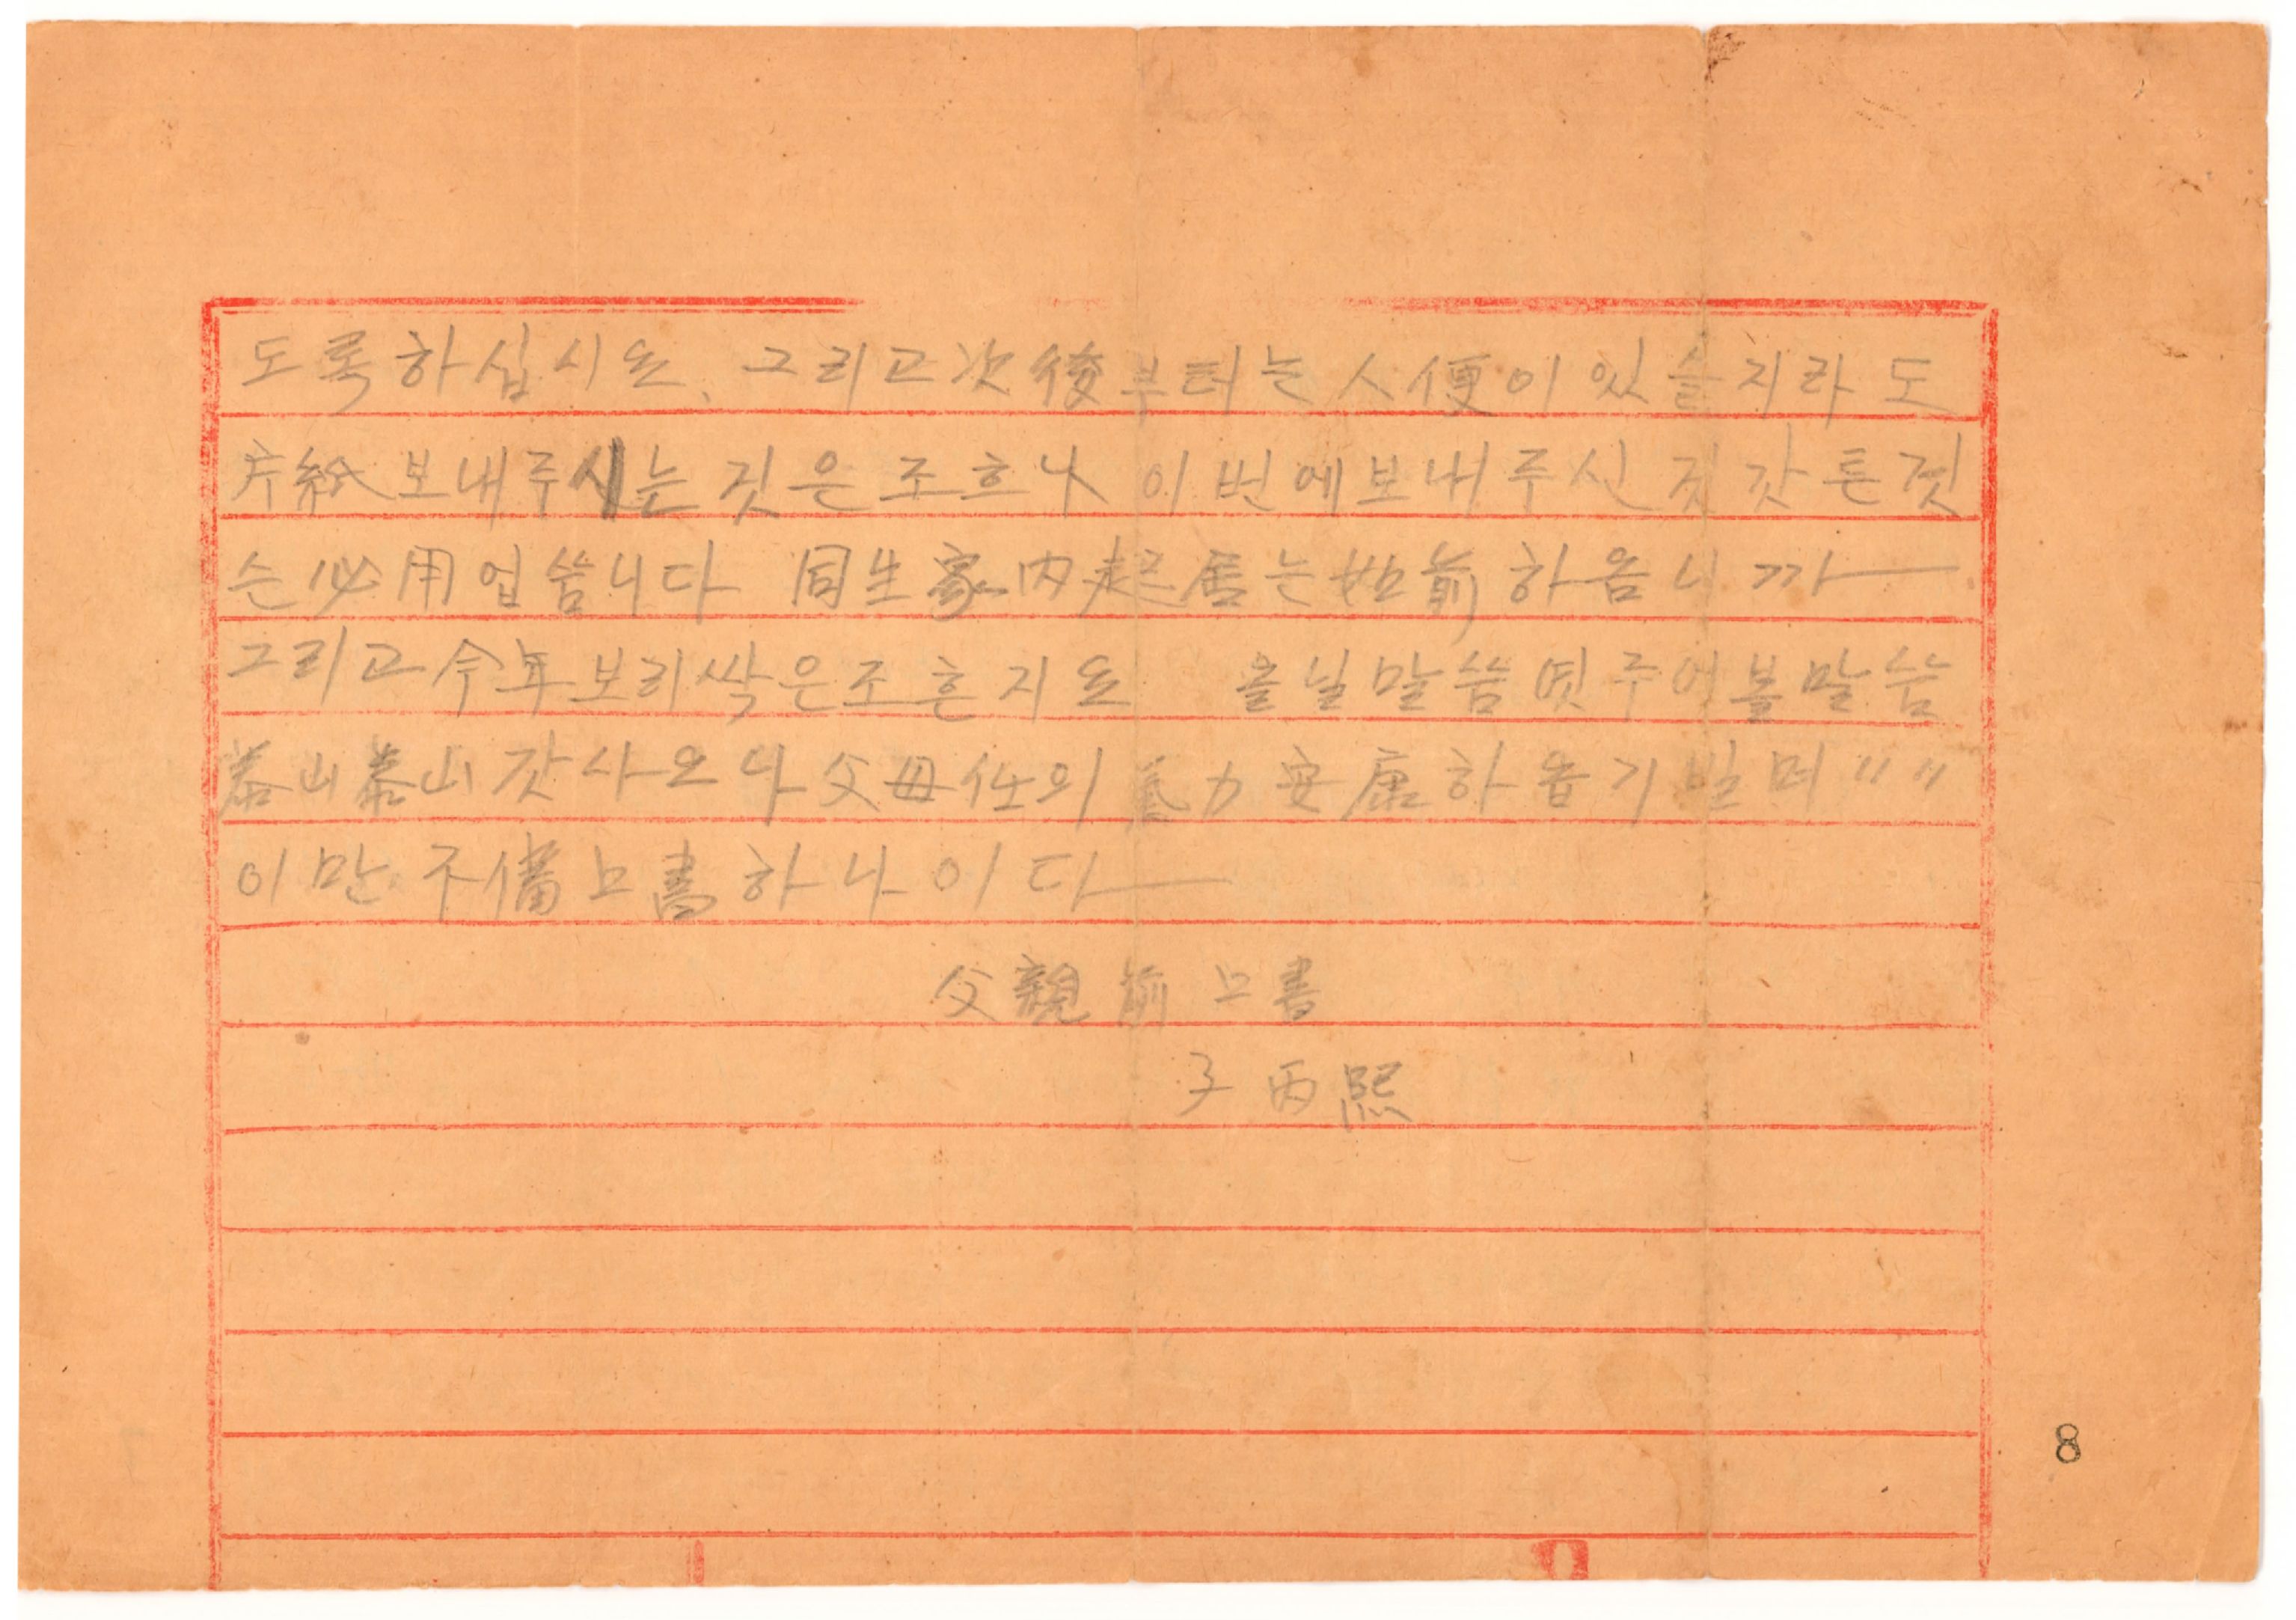 도록하십시요. 그리고次後부터는人便이있슬지라도
片紙보내주시는것은조흐나 이번에보내주신것갓튼것
슨必用업씀니다 同生家內起居는如前하옴니까—
그리고今年보리싹은조흔지요 올닐말씀엿주어볼말씀
泰山泰山갓사오나父母任의氣力安康하옵기빌며〃〃
이만 不備上書하나이다—
父親前上書
子 丙熙
8